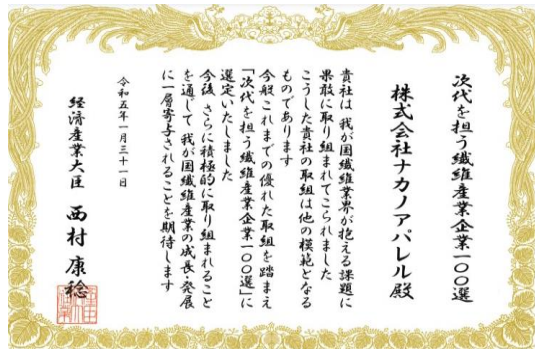 次代を担う繊維産業企業一〇〇選
株式会社ナカノアパレル殿
貴社は 我が国繊維業界が抱える課題に
果敢に取り組まれてこられました
こうした貴社の取組は他の模範となる
ものであります
今般これまでの優れた取組を踏まえ
「次代を担う繊維産業企業一〇〇選」に
選定いたしました
今後 さらに積極的に取り組まれること
を通じて 我が国繊維産業の成長・発展
に一層寄与されることを期待します
令和五年一月三十一日
経済産業大臣 西村 康稔